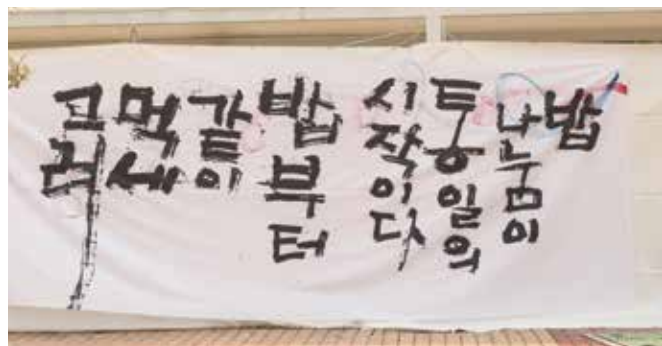 밥
나눔이
통일의
시작이다
밥부터
같이
먹세
그려